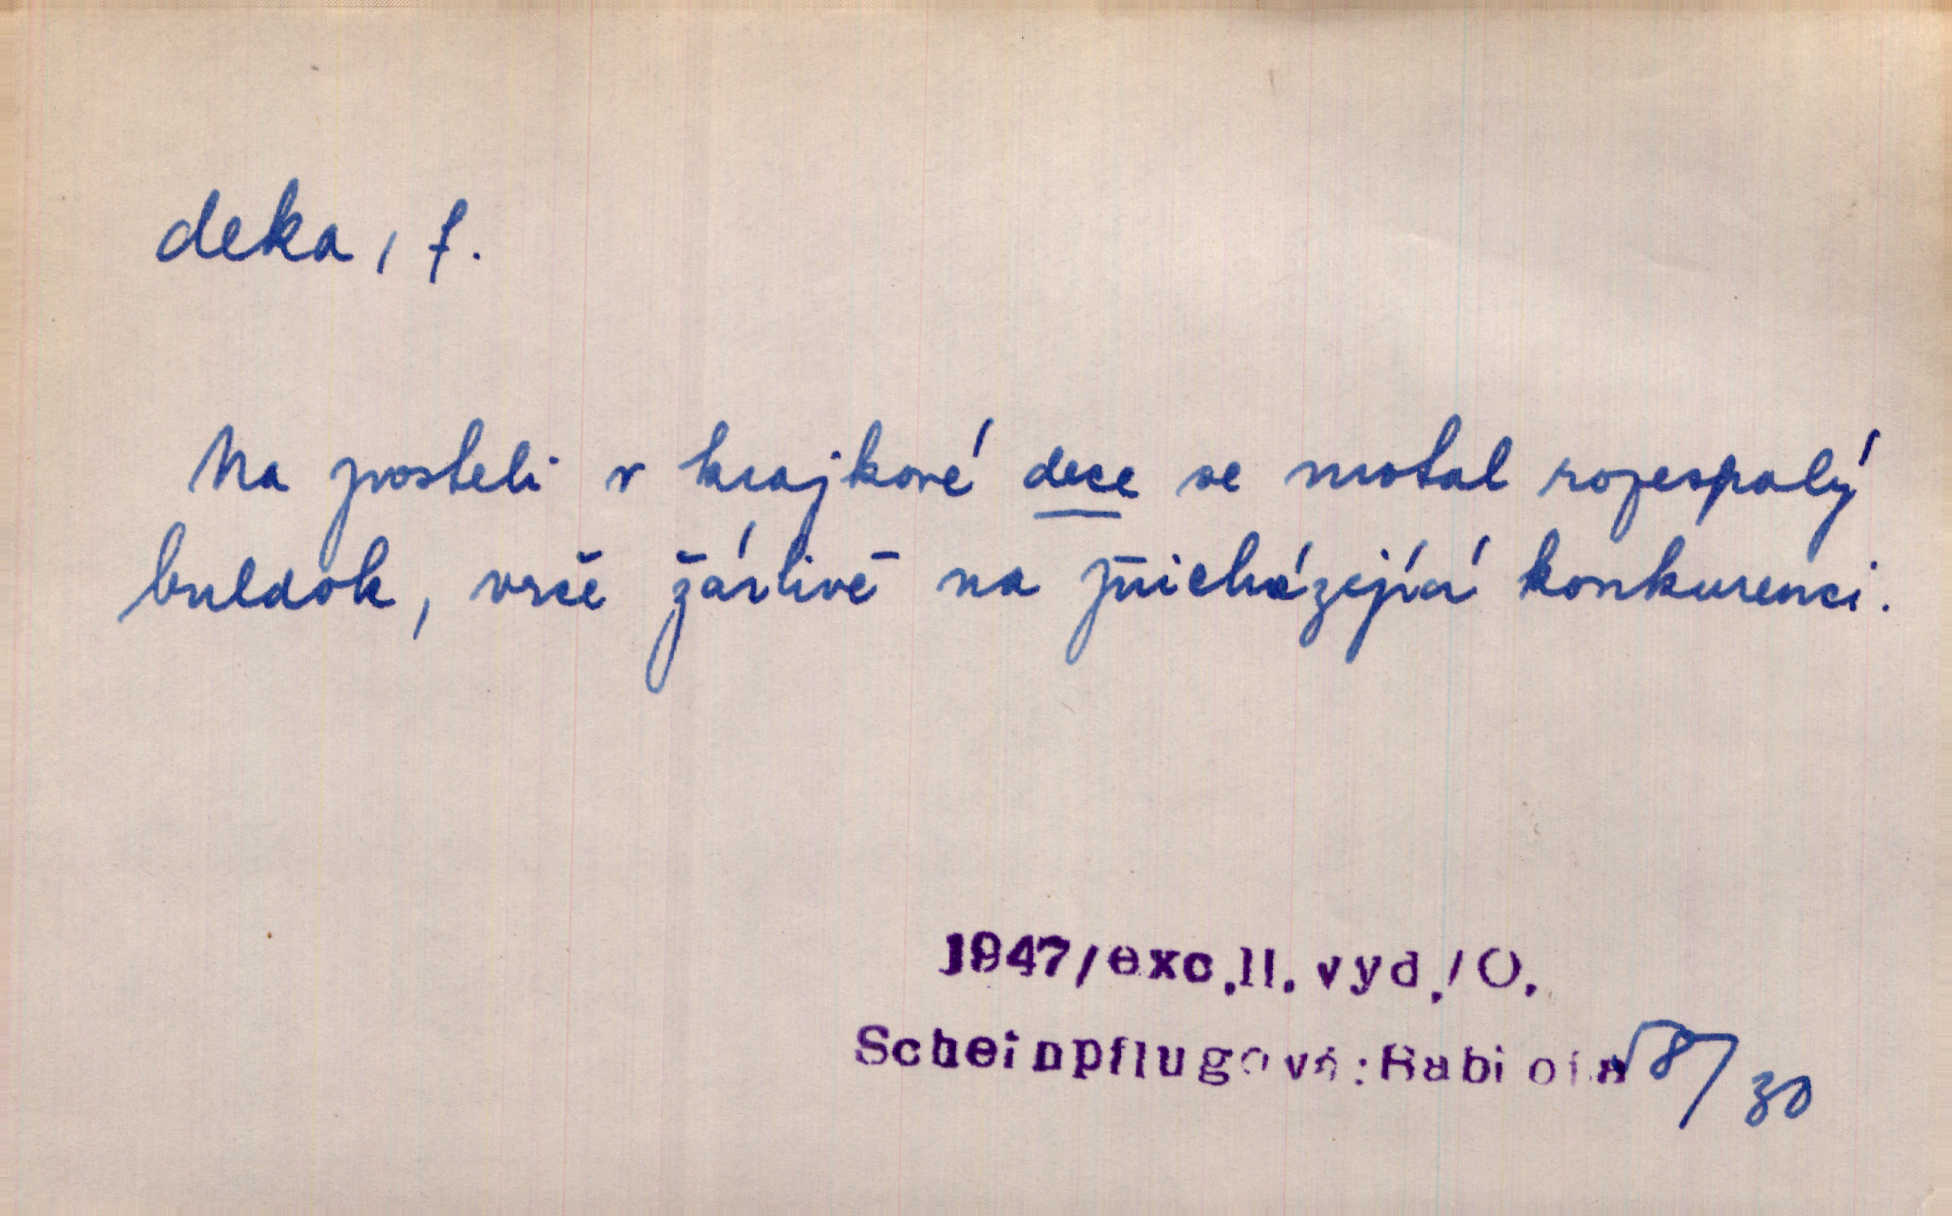 deka, f.
Na posteli v krajkové dece se motal rozespalý
buldok, vrče žárlivě na přicházející konkurenci.
1947/exc.II.vyd./O.
Scheinpflugová:Babiola 18/30